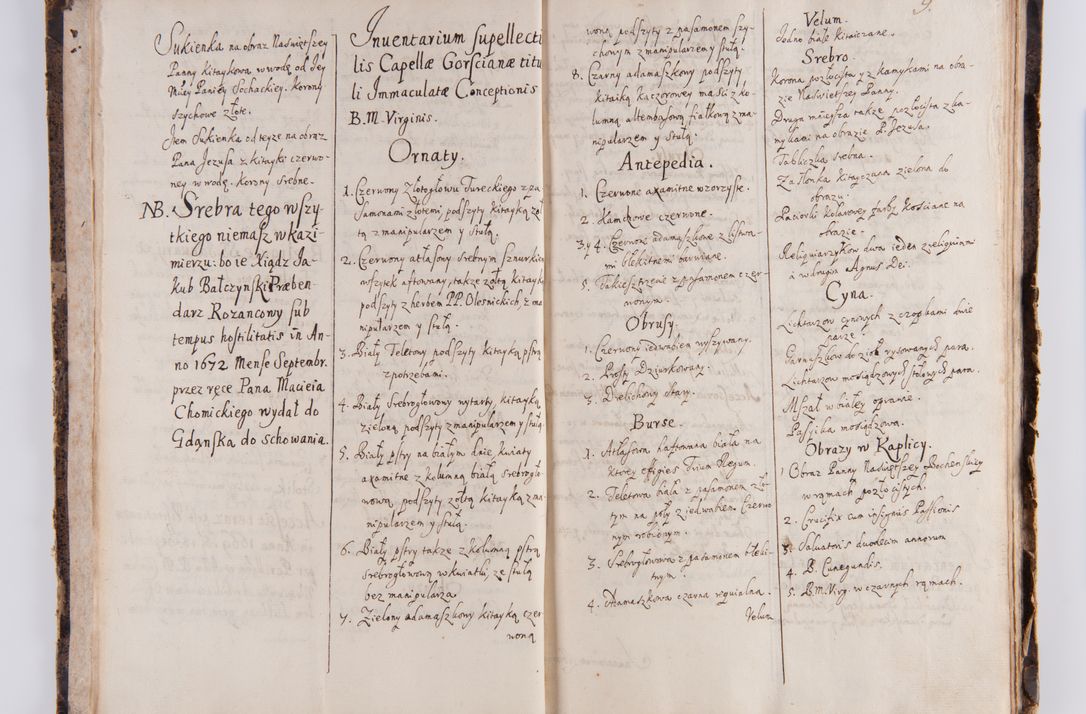 Sukienka na obraz Naświętszey
Panny kitaykowa w wodę od Jey
Mści Paniey Sochackiey. Korony
szychowe złote.
Item Sukienka od teyże na obraz
Pana Jezusa z kitayki czerwo-
ney w wodę. Korony srebne.
NB. Srebra tego wszy-
tkiego niemasz w Kazi-
mierzu: bo ie Xiądz Ja-
kub Balczynski Præben-
darz Rozancowy sub
tempus hostilitatis in An-
no 1672 Mense Septembr.
przez ręce Pana Macieia
Chomickiego wydał do
Gdańska do schowania.
Inventarium supellecti
lis Capellæ Gorscianæ titu
li Immaculatæ Conceptionis
B.M. Virginis.
Ornaty.
1. Czerwony Złotogłowu Tureckiego z pa
samonami złotemi, podszyty kitayką żół
tą z manipularzem y stułą.
2. Czerwony atłasowy srebnym sznurkiem
wszytek aftowany, także żołtą kitayką
podszyty z herbem PP. Olesnickich, z ma
nipularzem y stułą.
3. Biały Teletowy podszyty kitayką pstrą
z potrzebami.
4. Biały Srebrogłowowy wytarty, kitayką
zieloną podszyty z manipularzem y stułą.
5. Biały pstry na białym dnie, kwiaty
axamitne z kolumną białą srebrogło-
wową, podszyty żołtą kitayką z ma
nipularzem y stułą.
6. Biały pstry także z kolumną pstrą
srebrogłowową w kwiatki, ze stułą
bez manipularza.
7. Zielony adamaszkowy kitayką czer
woną
9.
woną podszyty z pasamonem szy-
chowym z manipularzem y stułą.
8. Czarny adamaszkowy podszyty
kitaiką kaczorowey maści z ko-
lumną altembasową fiałkową z ma-
nipularzem y stułą.
Antepedia.
1. Czerwone axamitne wzorzyste.
2 Kamchowe czerwone.
3. y 4. Czerwone adamaszkowe z listwa-
mi blekitnemi
5. Takiesz z pasamonem czer
wonym.
Obrusy.
1. Czerwony iedwabiem wyszywany.
2. Prosty Dziurkowany.
3. Drelichowy stary.
Burse.
1. Atłasowa haftowana biała na
ktorey effigies Trium Regum.
2. Teletowa biała z pasamonem zło
tym na poły z iedwabiem czerwo
nym robionym.
3. Srebrogłowowa z pasamonem błeki-
tnym.
4. Adamaszkowa czarna requialna.
Velum
Velum.
Jedno białe kitaiczane.
Srebro.
Korona pozłocista y z kamykami na obra-
zie Naświetszey Panny.
Druga mnieysza także pozłocista z ka-
mykami na obrazie P. Jezusa.
Tabliczka srebna.
Zasłonka kitayczana zielona do
obrazu.
Paciorki kolorowey farby kościane na
obrazie.
Religuiarzykow dwa ieden z religuiami
i w drugim Agnus Dei.
Cyna.
Lichtarzow cynowych z czopkami dwie
parze.
Garnuszkow do zioł rysowanych para.
Lichtarzow mosiądzowych stołowych para.
Mszał w białey oprawie.
Passyika mosiądzowa.
Obrazy w Kaplicy.
1 Obraz Panny Naświetszey Bochenskiey
w ramach pozłocistych.
2. Crucifix cum insigniis Passionis
3. Salvatoris duodecim annorum
4. B. Cunegundis.
5. B.M. Virg. w czarnych ramach.